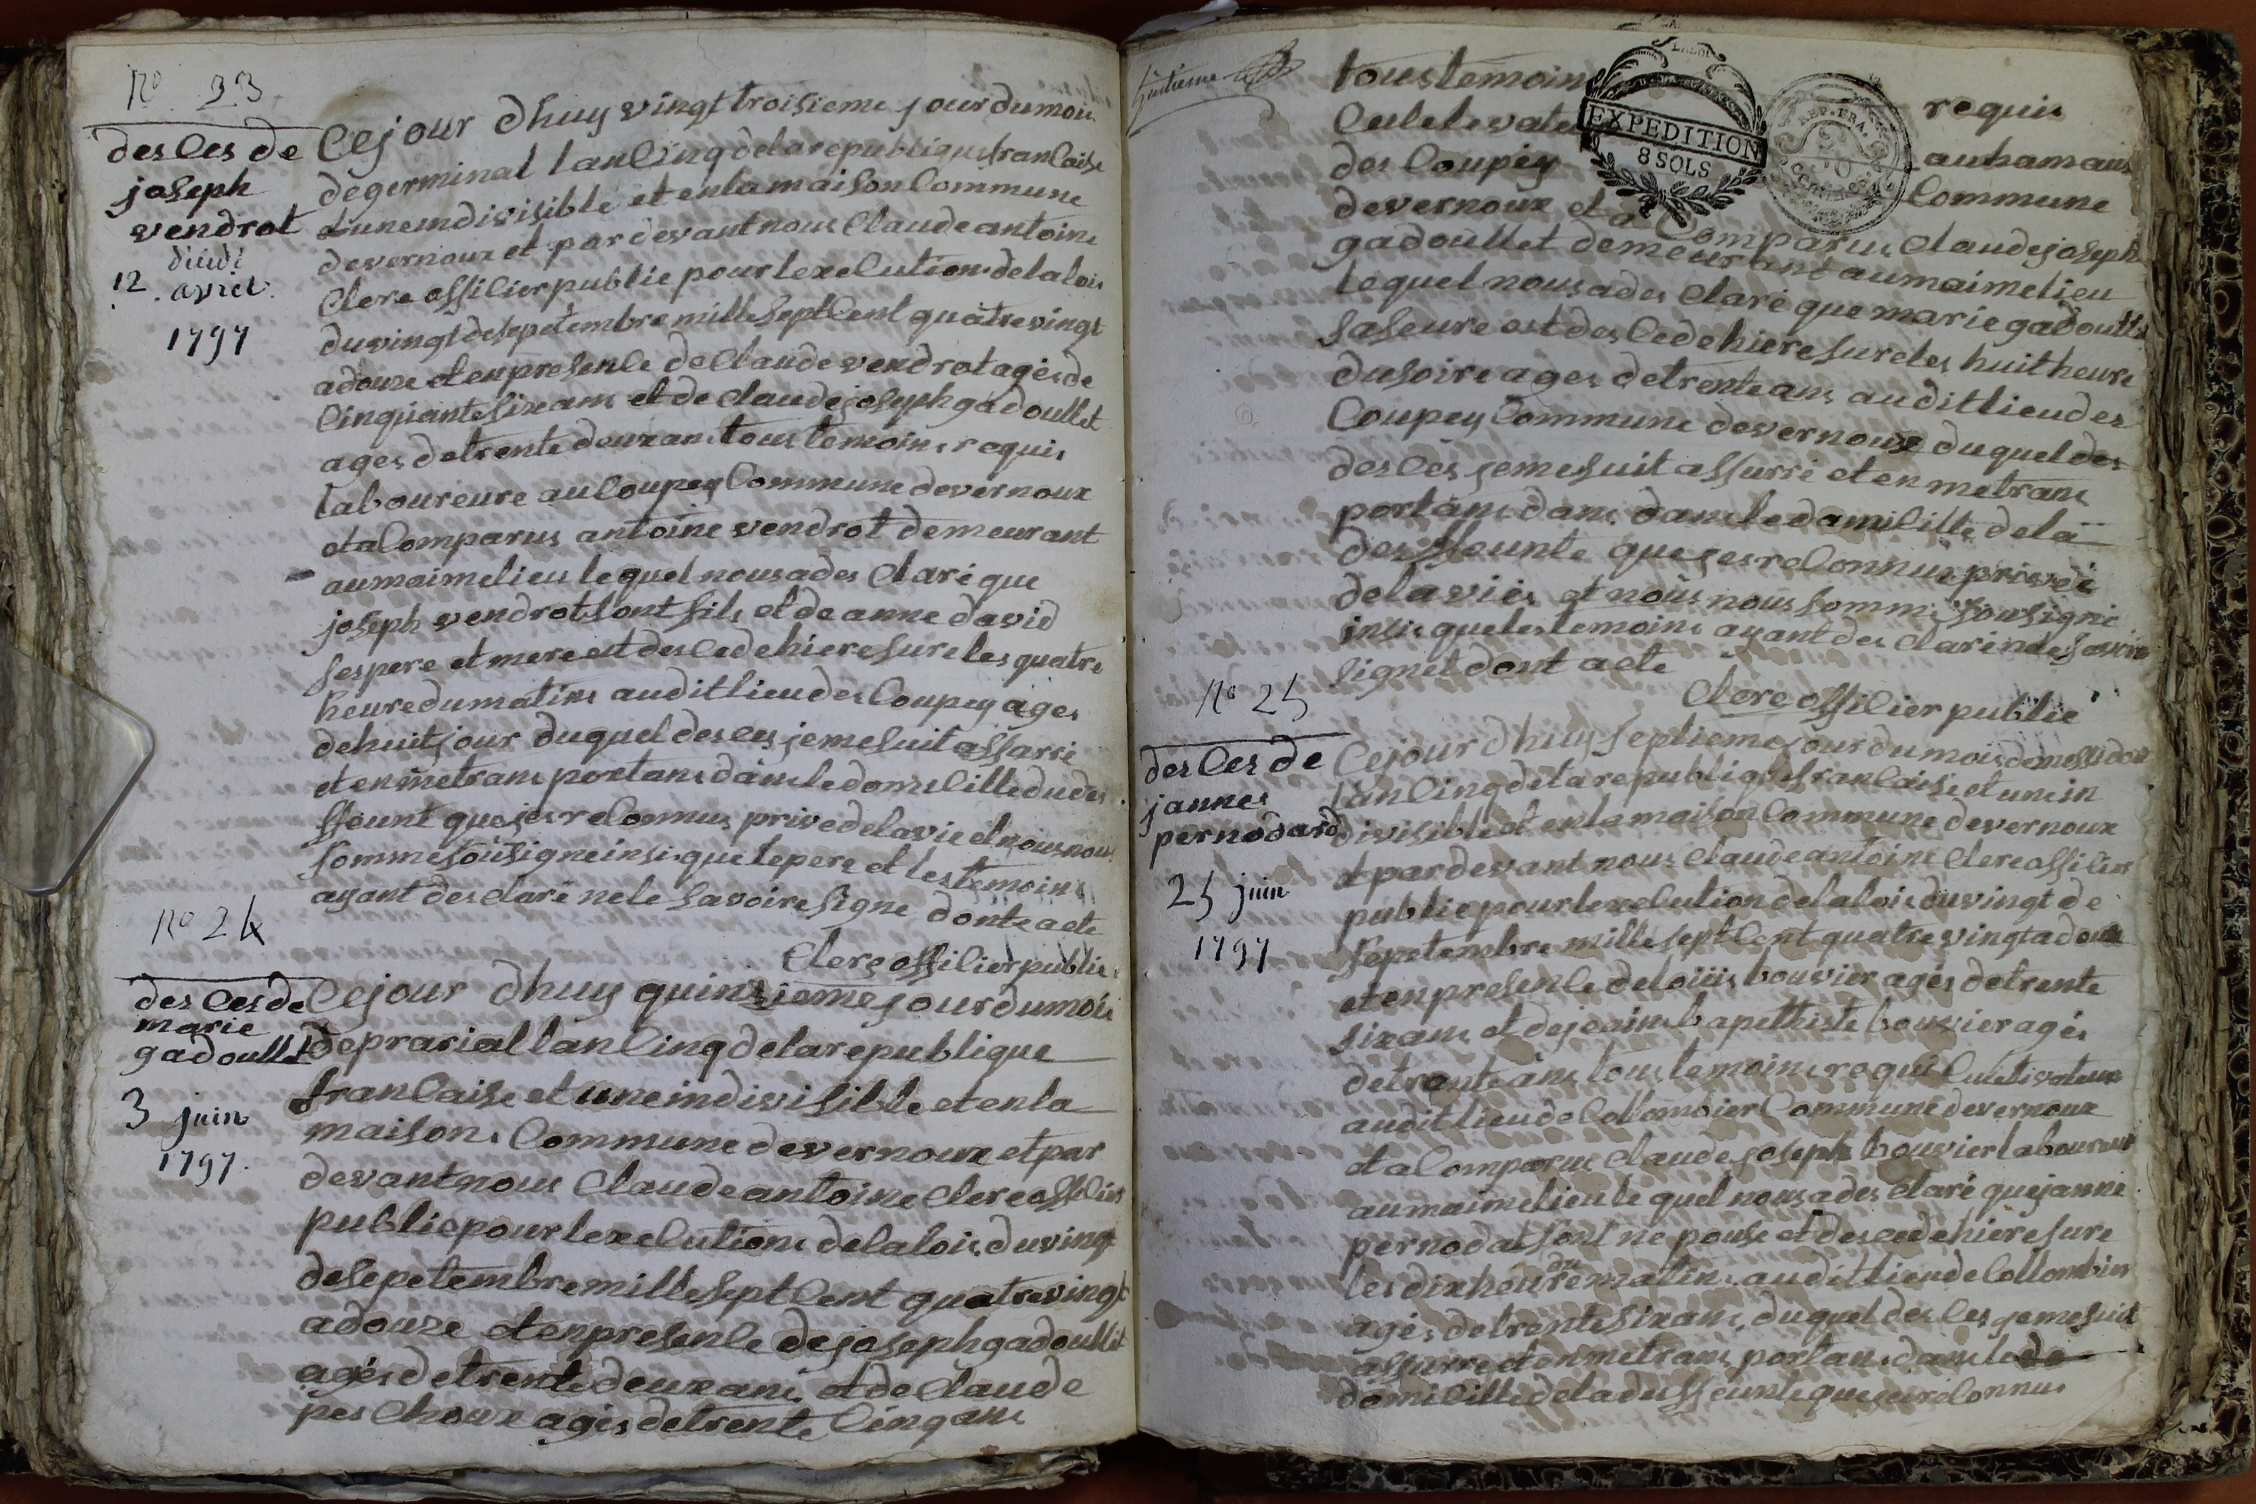 No 23
des Ces de
joseph
vendrot
12 avril
1797
Cejour dhuy vingt troisieme jour dumois
degerminal lan Cinq delarepublique franCaise
et uneindivisible et enlamaison Commune
devernoux et par devant nous Claude antoine
Clerc offiCier public pour lexeCution delaloi
duvingt desepetembre mille Sept Cent quatre vingt
adouze et enpresenCe de Claude vendrot agés de
Cinquante Six ans et de Claude joseph gadoullet
agés detrente deux ans tous temoins requis
laboureure auCoupey Commune devernoux
et aComparus antoine vendrot demeurant
aumaimelieu lequel nous ades Claré que
joseph vendrot Sont fils et de anne david
Ses pere et mere est desCede hiere Sure les quatre
heure dumatins audit lieu des Coupey ages
dehuit jour duquel desces jemeSuit assarré
et enmetrans portans dans le domiCille dudes
ffeunt quejes reConnus prive delavie et nous nous
Somme Sousigne insi que lepere et les temoins
ayant des Claré nele Savoire Signe dont acte
Clerc offiCier public
No 24
des Ces de
marie
gadoullet
3 juin
1797
Cejour dhuy quinzieme jour dumois
deprarial lan Cinq delarepublique
franCaise et uneindivisible et enla
maison Commune devernoux et par
devant nous Claude antoine Clerc offiCier
public pour lexeCution delalois duvingt
desepetembre mille Sept Cent quatrevingt
adouze et enpresenCe de joseph gadoullet
agés detrente deux ans et de Claude
pes Choux agés detrente Cinq ans
tous temoin requis
des Coupey auhamaux
EXPEDITION
8 SOLS
REP. FRA.
devernoux et a Comparus Claude joseph Commune
gadoullet demeurant aumaimelieu
lequel nous ades Claré que marie gadoullet
saSeure est des Cede hiere Sure les huit heure
dusoire ages detrente ans audit lieu des
Coupey Commune devernoux duquel des
des Ces jemeSuit assurré et en metrans
portans dans dans le domiCille dela
desffeunte que jes reConnus privéé
delaviés et nous nous Somme Sousigné
insi que les temoins ayant des Claré nele Savoire
Signet dont acte
Clerc offiCier public
No 25
des Ces de
jannes
pernodard
25 juin
1797
Cejour dhuy Septieme jour dumois demessidor
lan Cinq delarepublique franCaise et une in
divisible et enla maison Commune devernoux
et pardevant nous Claude antoine Clerc offiCier
public pour lexeCution delalois duvingt de
Sepetembre mille Sept Cent quatre vingt adouze
et enpresenCe delouis bouvier agés detrente
Six ans et dejean bapethiste bouvier agés
detrente ans tous temoins requi Culetivateur
audit lieu de Collombier Commune devernoux
et aComparus Claude joseph bouvier laboureur
aumaimelieu le quel nous ades Claré que janne
pernodat Sont nepouse et desCede hiere Sure
les dix heure du matins audit lieu de Collombier
agés detrente Six ans duquel des Ces jemeSuit
assurre et enmetrans portans dans le do
domiCille deladesffeunte que jes reConnus